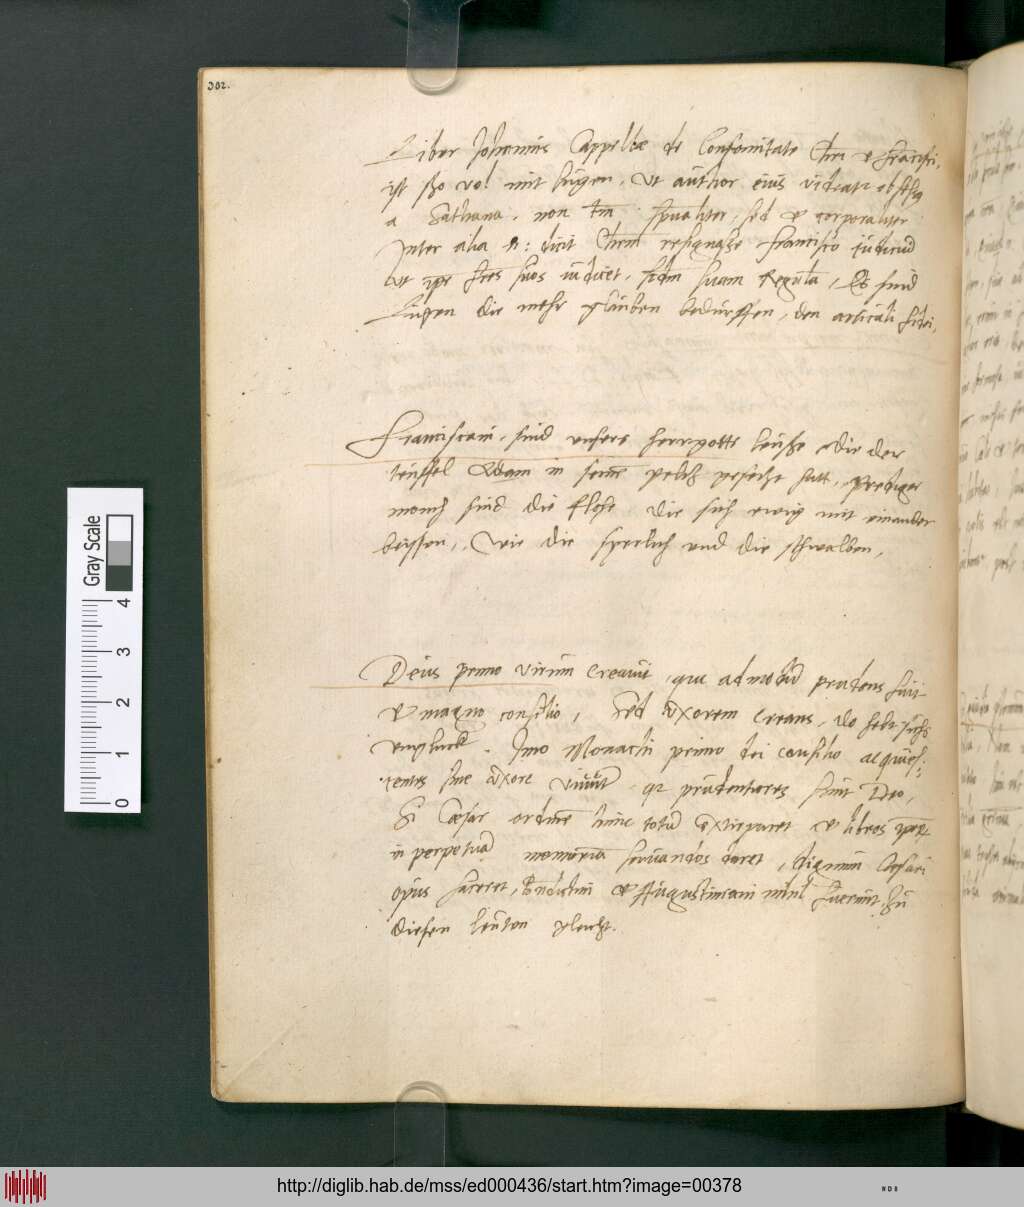 302.
Liber Johannis Cappellae de Conformitate Chri et Francisci,
ist sso vol mit lugen, ut author eius videatr obsessus
a Sathana. non tm spualiter, sed et corporaliter
Inter alia n: dicit Chrm resignasse Francisco iudiciu
ut ipe fres suos iudicet, scdm suam Regula, Es sind
Lugen die mehr glauben bedurffen, den articuli fidei,
Franciscani, sind unsers herrgotts leuse die der
teuffel Adam in seine peltz gesetzt hatt, Prediger
monch sind die flohe die sich ewig mit einander
beyssen, Wie die sperlich und die schwalben,
Deus primo virum creavit, qui admodu prudens fuit
et magno consilio, Sed uxorem creans, do hebt sichs
ungluck. Imo Monachi primo dei consilio acquies-
centes sine uxore vivut, qr prudentiores sunt Deo,
Si Caesar ordine hunc totu extirparet et libros
in perpetua memoria servandos daret, dignum Caesari
opus faceret, et Augustiniani nihil fuerunt, zu
diesen leuten gleicht.
Gray Scale
0 1 2 3 4
http://diglib.hab.de/mss/ed000436/start.htm?image=00378